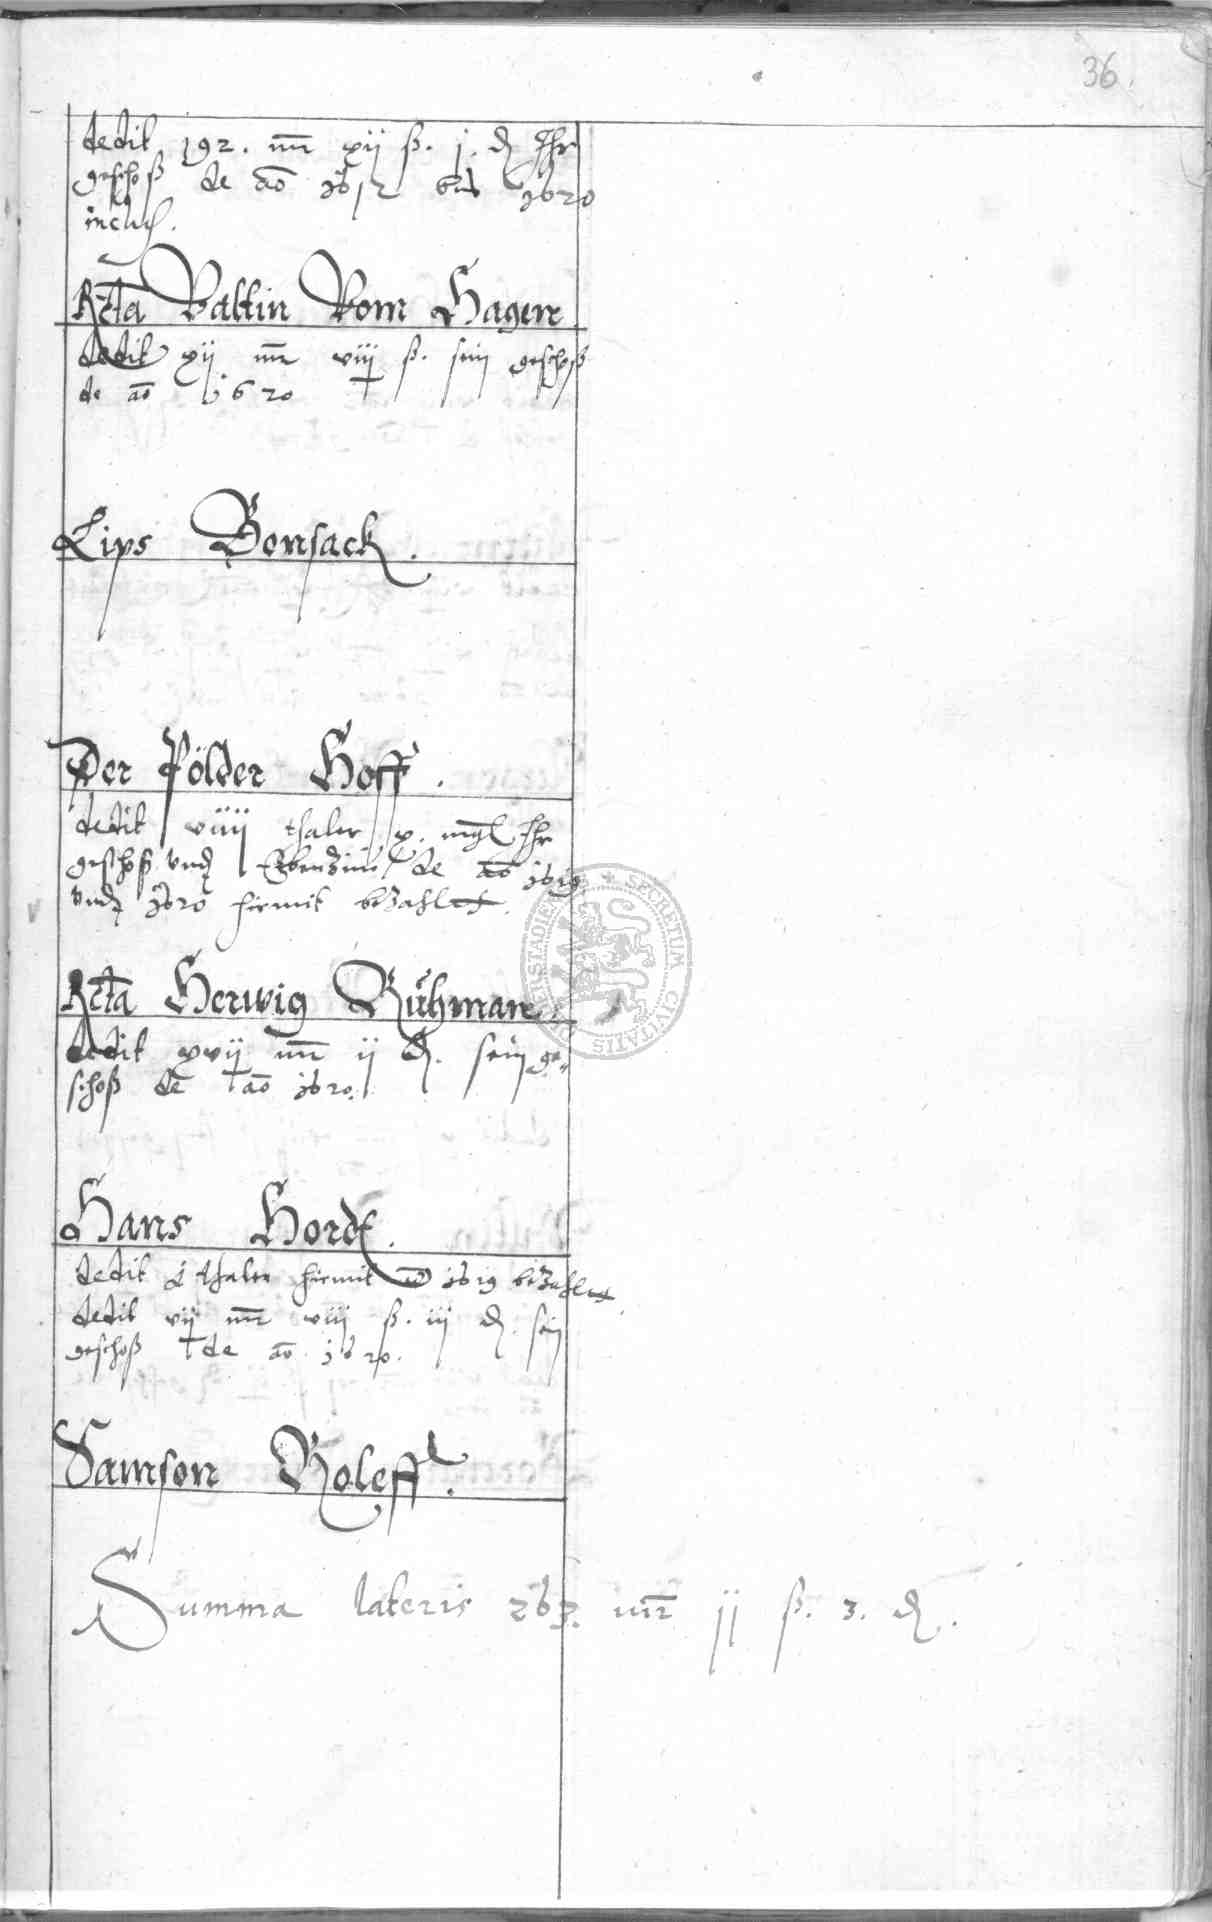 36
dedit 192. mr xij ß. j. ₰ Ihr
geschoß de ao 1612 biß 1620
inclus.
Rcta Valtin Vom Hagen
dedit xij mr viij ß. sein geschoß
de ao 1620
Lips Bonsack.
Der Pölder Hoff.
dedit viiij thaler x. mgl Ihr
geschoß vnd Erbenzinß de ao 1619
vnd 1620 hiemit bezahlet.
Rcta Herwig Rühman.
dedit xvij mr ij ₰. sein ge-
schoß de ao 1620.
Hans Hord.
dedit thaler hiermit 1619 bezahlet.
dedit vij mr viij ß. iij ₰. sein
geschoß de ao 1620.
Samson Roleff.
Summa lateris 263. mr ij ß. 3. ₰.
SECRETUM CIVITATIS DUDERSTADIENSIS